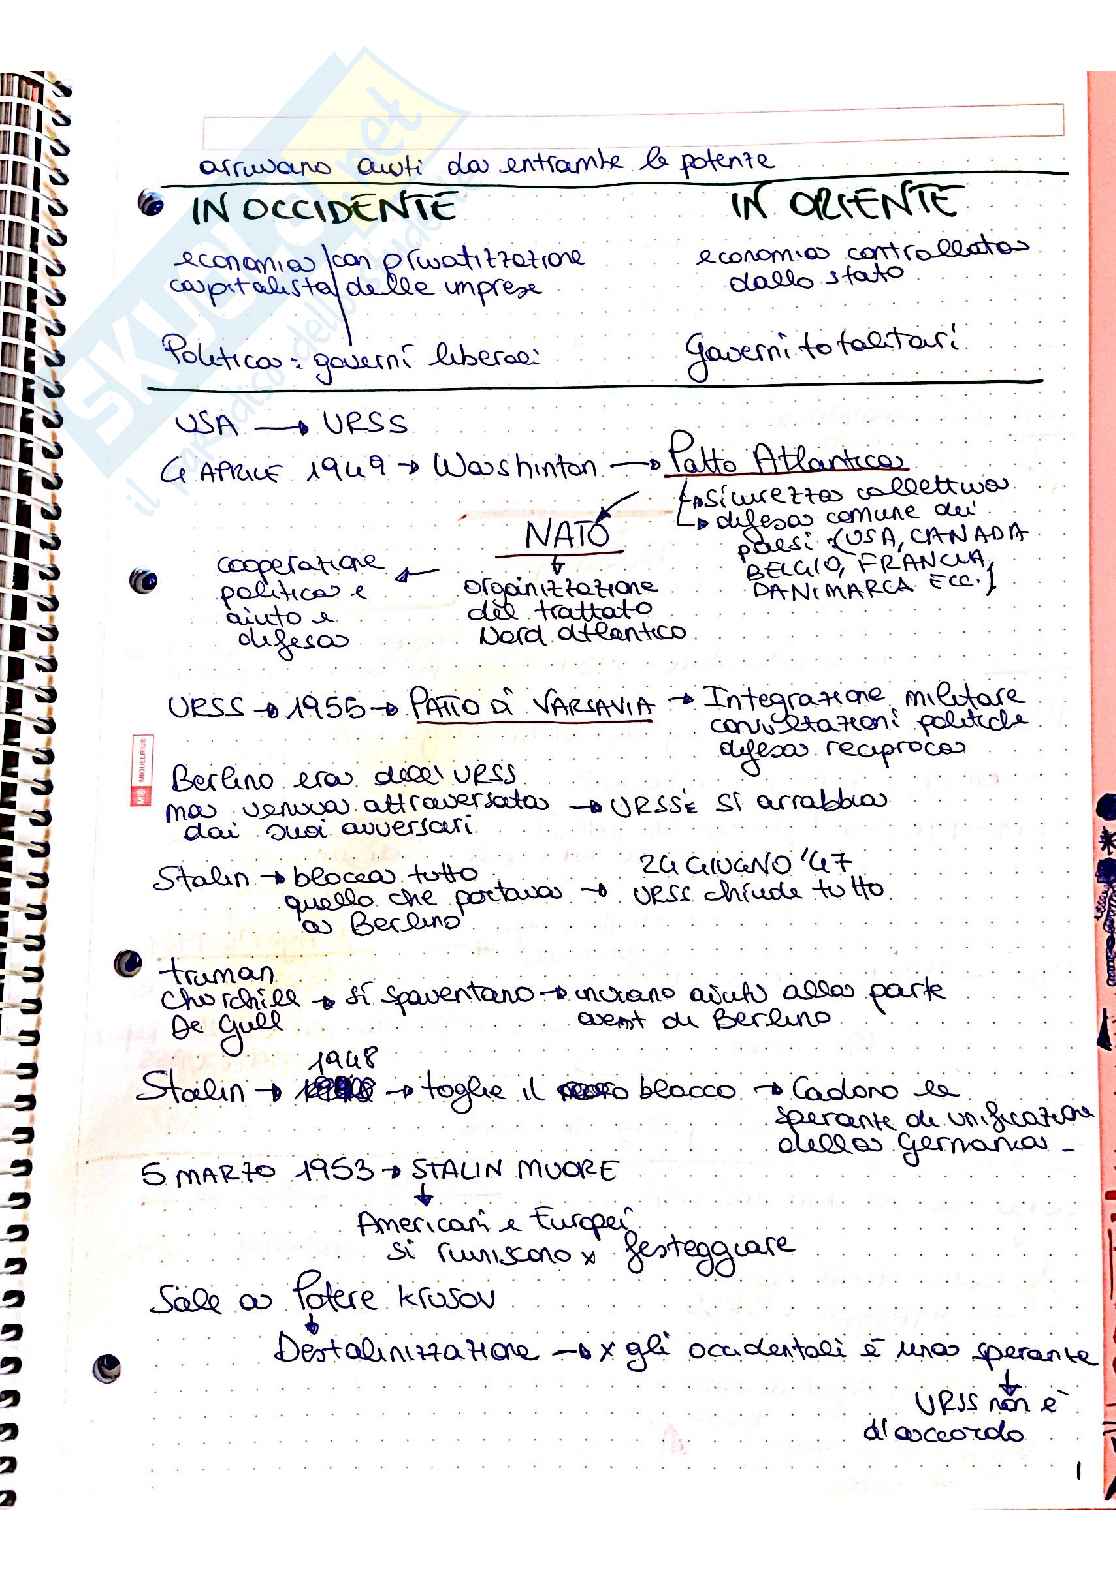 arrivano aiuti da entrambe le potenze
IN OCCIDENTE
IN ORIENTE
economia con privatizzazione
capitalista delle imprese
economia controllata
dallo stato
Politica: governi liberali
Governi totalitari
USA → URSS
4 APRILE 1949 → Washinton → Patto Atlantico
→ sicurezza collettiva
→ difesa comune dei
paesi (USA, CANADA
BELGIO, FRANCIA,
DANIMARCA ECC.)
NATO
organizzazione
del trattato
Nord Atlantico
cooperazione
politica e
aiuto e
difesa
URSS → 1955 → PATTO di VARSAVIA → Integrazione militare
consultazioni politiche
difesa reciproca
Berlino era dell'URSS
ma veniva attraversata → URSS si arrabbia
dai suoi avversari
Stalin → blocca tutto
quello che portava →
a Berlino
24 GIUGNO '47
URSS chiude tutto
truman
Churchill → si spaventano → inviano aiuti alla parte
De Gull
ovest di Berlino
1948
Stalin → → toglie il blocco → Cadono le
speranze di unificazione
della Germania -
5 MARZO 1953 → STALIN MUORE
Americani e Europei
si riuniscono x festeggiare
Sale a Potere Krusov
Destalinizzazione → x gli occidentali è una speranza
URSS non è
d'accordo
1
SKUOLA.net
il paradiso dello studente